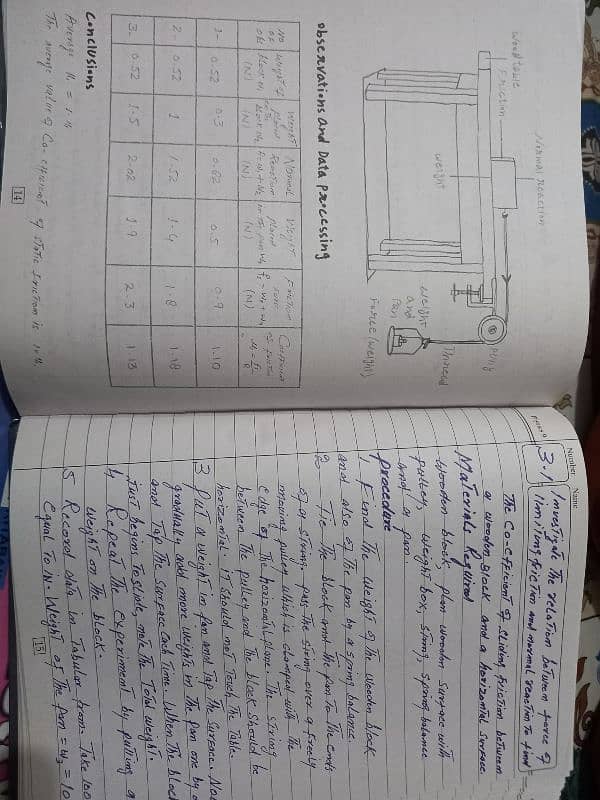 Number
Name
3.1
Investigate the relation between force of
limiting friction and normal reaction to find
The Co-efficient of sliding friction between
a wooden block and a horizontal surface
Materials Required
Wooden block, plan wooden surface with
pulley, weight box, string, spring balance
and a pan
Procedure
1 Find the weight of the wooden block
and also of the pan by a spring balance.
2 Tie the block and the pan to the ends
of a string. pass the string over a freely
moving pulley which is clamped with the
edge of the horizontal plane. The string
between the pulley and the block should be
horizontal. it should not touch the table.
3 put a weight in pan and tap the surface. Now
gradually add more weights in the pan one by o
and tap the surface each time. When the block
just begins to slide, note the total weight.
4 Repeat the experiment by putting a
weight on the block.
5 Record data in Tabular from. Take 100
equal to 1N. Weight of the pan = w3 = 10
13
Normal reaction
Wood table
Friction
weight
weight
and
Pan
Thread
Force (weight)
Observations and Data processing
No
of
obs
Weight of
block w1
(N)
Weight
placed
block w2
(N)
Normal
Reaction
(N)
Weight
placed
in the pan w4
(N)
Friction
(N)
1. 0.52 0.3 0.82 0.5 0.9 1.10
2. 0.52 1 1.52 1.4 1.8 1.18
3. 0.52 1.5 2.02 1.9 2.3 1.13
Conclusions
Average
The average value of Co-efficient of static friction is
14